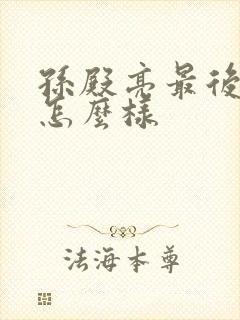 孫殿亮最後
怎麼樣
法海本尊